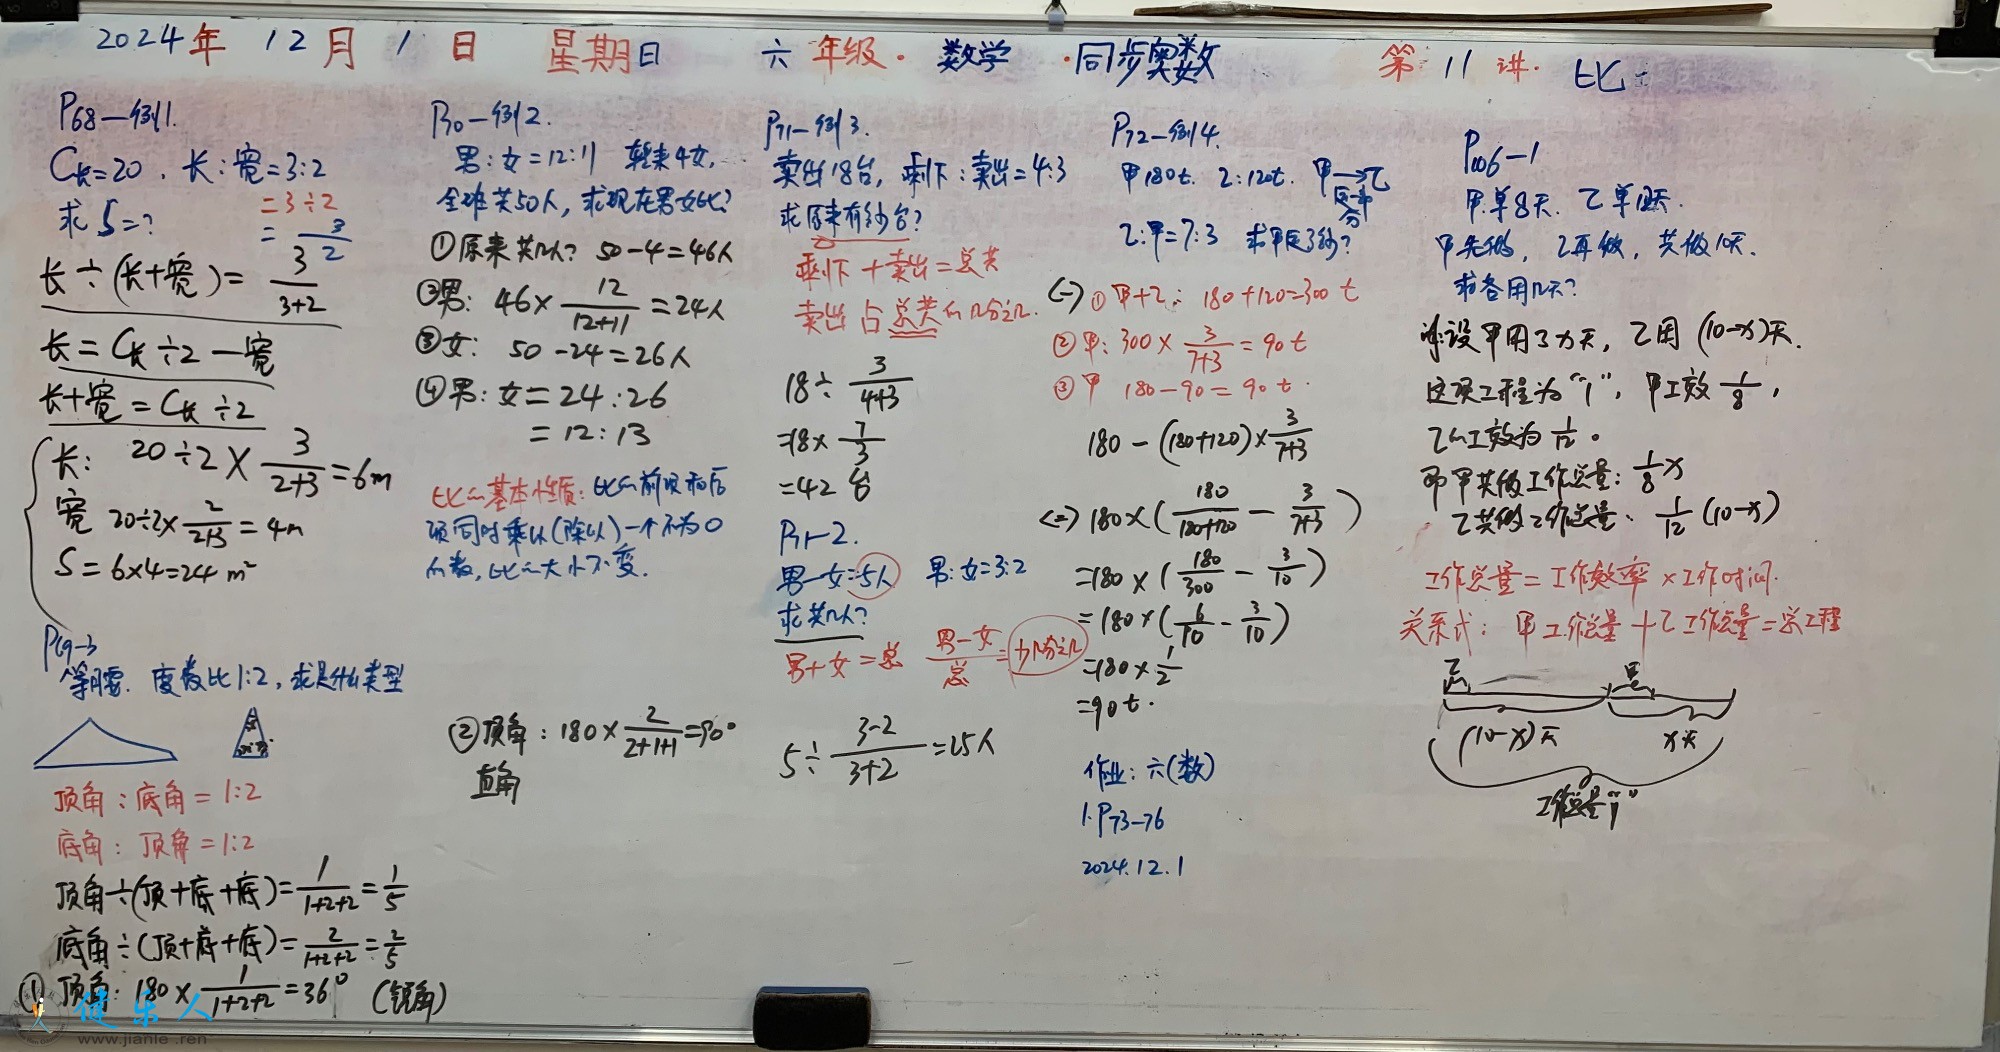 2024年 12月 1日 星期日 六年级·数学·同步奥数 第11讲·比
P68—例1.
C长=20，长:宽=3:2
求S=? =3÷2
=3/2
长÷(长+宽)=3/(3+2)
长=C长÷2—宽
长+宽=C长÷2
长: 20÷2×3/(2+3)=6m
宽 20÷2×2/(2+3)=4m
S=6×4=24m²
P69-3
等腰. 度数比1:2,求是什么类型
顶角:底角=1:2
底角:顶角=1:2
顶角÷(顶+底+底)=1/(1+2+2)=1/5
底角÷(顶+底+底)=2/(1+2+2)=2/5
①顶角:180×1/(1+2+2)=36° (锐角)
P70—例2.
男:女=12:11 转来4女,
全班共50人,求现在男女比?
①原来共几人? 50-4=46人
②男: 46×12/(12+11)=24人
③女: 50-24=26人
④男:女=24:26
=12:13
比的基本性质:比的前项和后
项同时乘以(除以)一个不为0
的数,比的大小不变.
②顶角:180×2/(2+1+1)=90°
直角
P71—例3.
卖出18台,剩下:卖出=4:3
求原来有多少台?
剩下+卖出=总共
卖出占总共的几分之几.
18÷3/(4+3)
=18×7/3
=42台
P71-2.
男—女=5人 男:女=3:2
求共几人?
男+女=总 (男-女)/总=少几分之几
5÷(3-2)/(3+2)=25人
P72—例4.
甲180t. 乙:120t. 甲→乙
运一部分
乙:甲=7:3 求甲运了多少?
(=)①甲+乙: 180+120=300t
②甲:300×3/(7+3)=90t
③甲 180-90=90t.
180-(180+120)×3/(7+3)
(=)180×(180/(180+120)-3/(7+3))
=180×(180/300-3/10)
=180×(6/10-3/10)
=180×1/2
=90t.
作业:六(数)
1.P73-76
2024.12.1
P106-1
甲单8天. 乙单12天.
甲先做,乙再做,共做10天.
求各用几天?
解:设甲用了x天,乙用(10-x)天.
这项工程为"1",甲工效1/8,
乙的工效为1/12。
即甲共做工作总量:1/8x
乙共做工作总量:1/12(10-x)
工作总量=工作效率×工作时间.
关系式:甲工作总量+乙工作总量=总工程
乙 甲
(10-x)天 x天
工作总量"1"
健乐人
www.jianle.ren